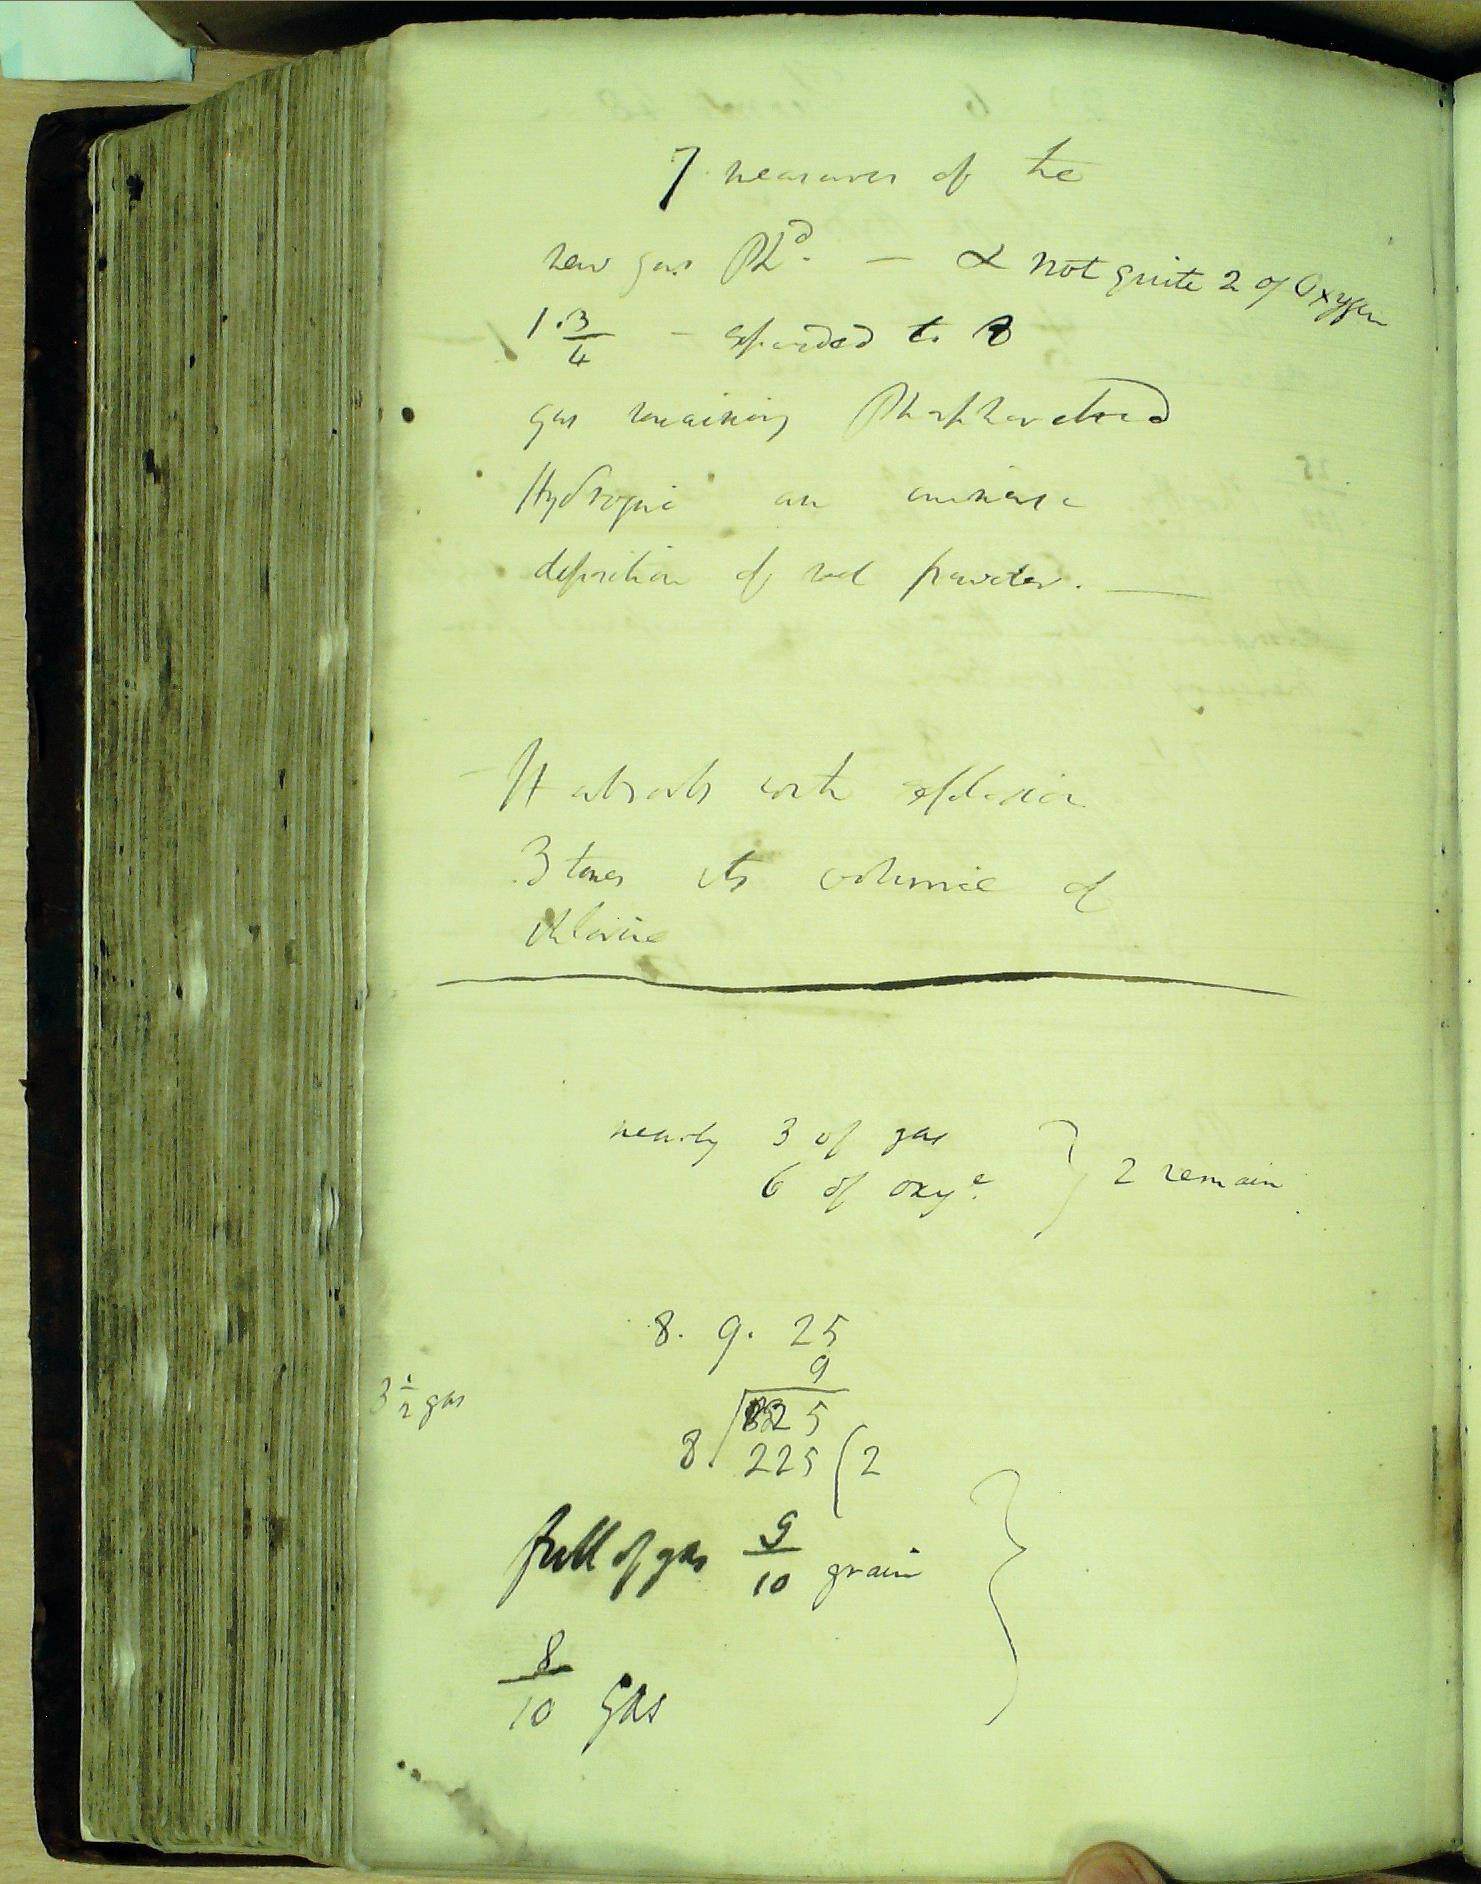 7 measures of the
new gas Phd. — & not quite 2 of Oxygen
1.3/4 — expanded to 8
gas remaining Phosphoretted
Hydrogene an immense
deposition of red powder. —
— It absorbs with explosion
3 times its volume of
chlorine
nearly 3 of gas
6 of oxye. } 2 remain
8. 9. 25
9
3 1/2 gas
25
8. 225 (2
full of gas 9/10 grain
8/10 gas